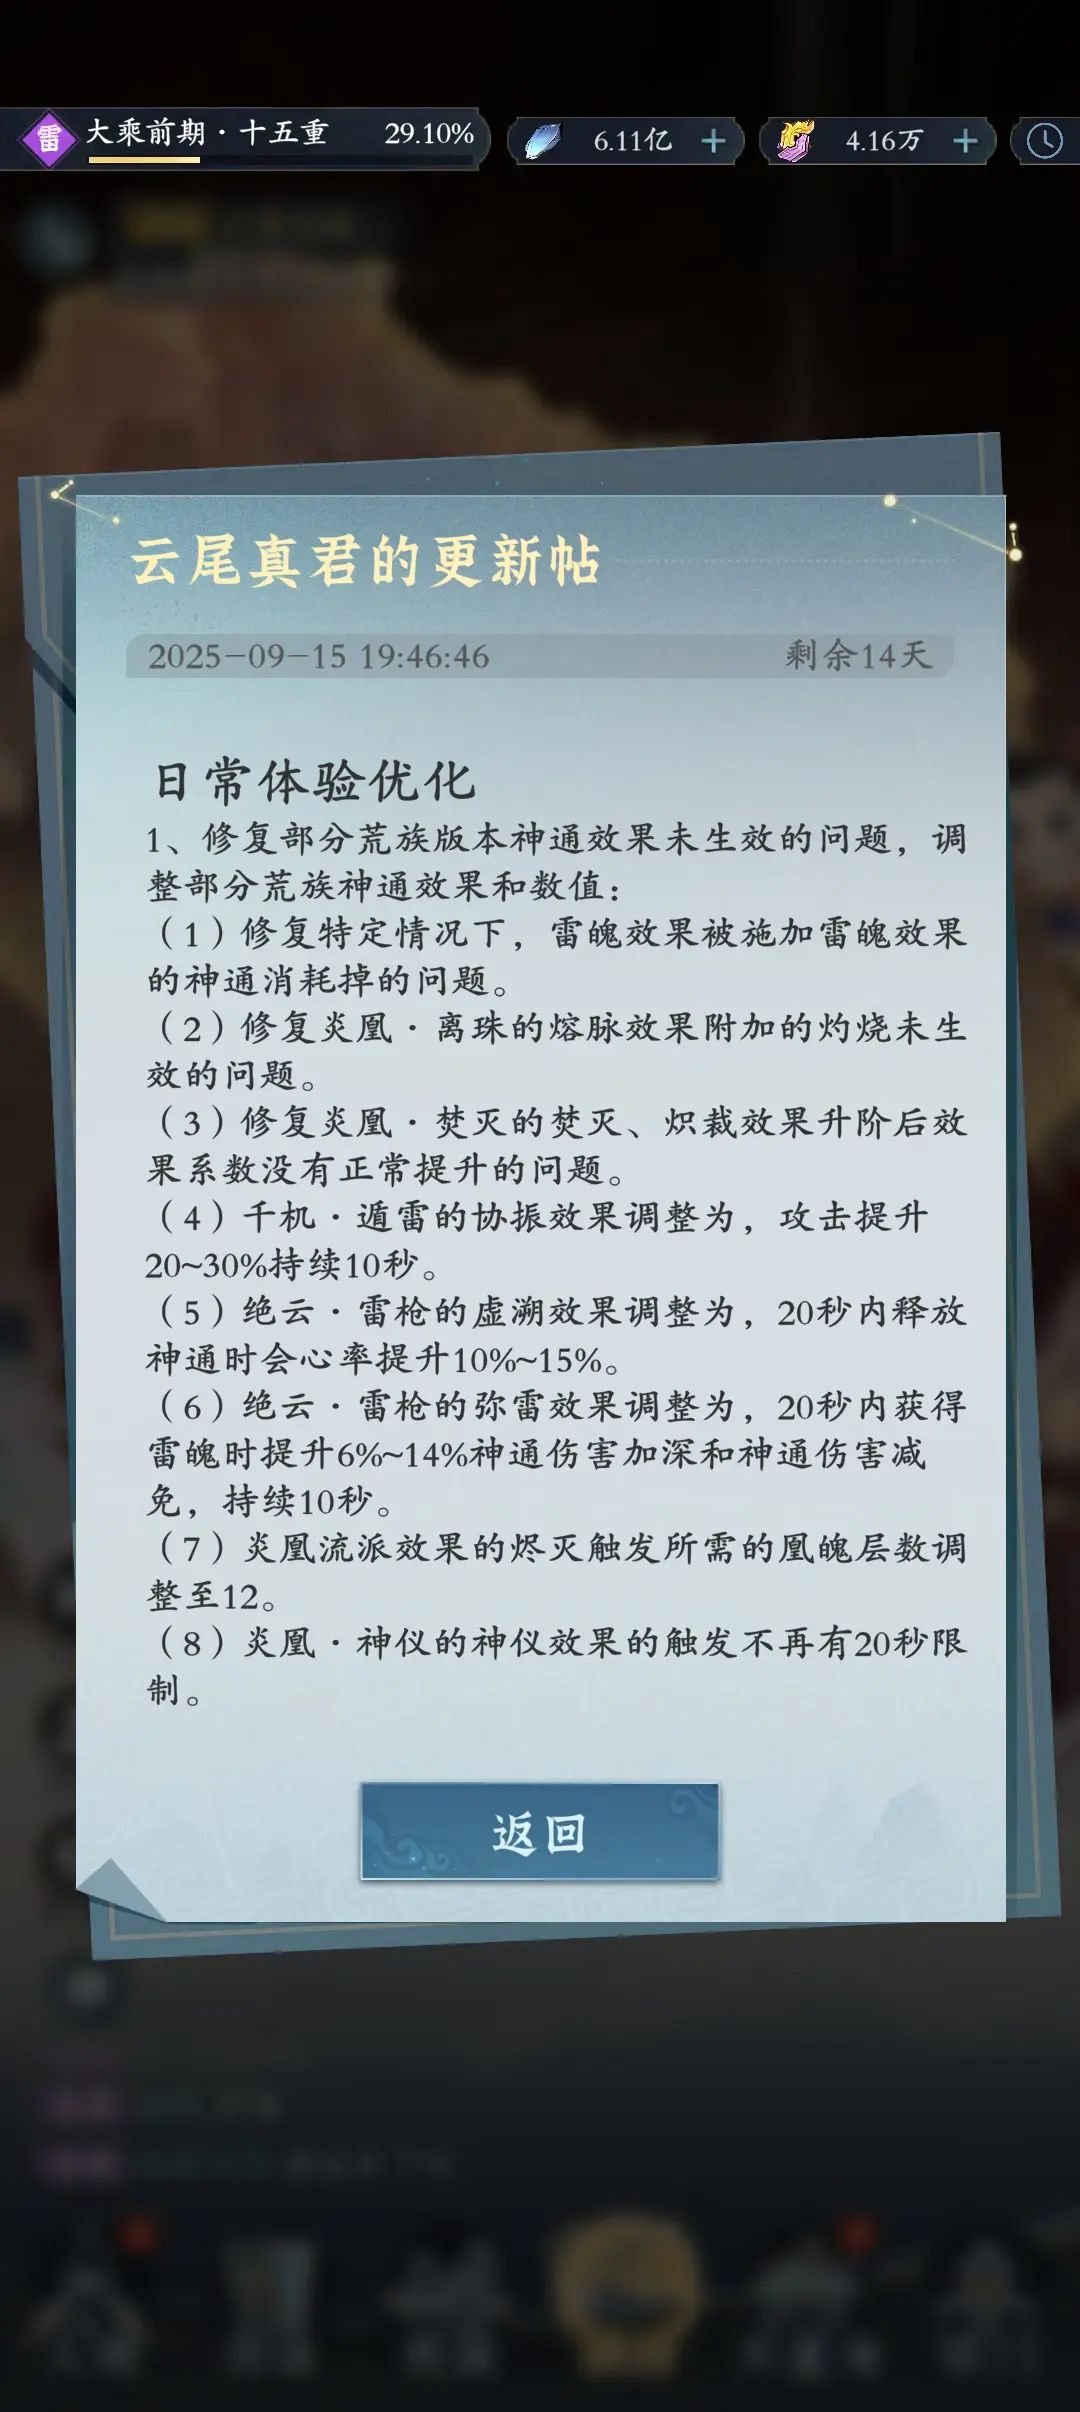 雷 大乘前期·十五重 29.10% 6.11亿 4.16万
云尾真君的更新帖
2025-09-15 19:46:46 剩余14天
日常体验优化
1、修复部分荒族版本神通效果未生效的问题，调
整部分荒族神通效果和数值：
（1）修复特定情况下，雷魄效果被施加雷魄效果
的神通消耗掉的问题。
（2）修复炎凰·离珠的熔脉效果附加的灼烧未生
效的问题。
（3）修复炎凰·焚灭的焚灭、炽裁效果升阶后效
果系数没有正常提升的问题。
（4）千机·遁雷的协振效果调整为，攻击提升
20~30%持续10秒。
（5）绝云·雷枪的虚溯效果调整为，20秒内释放
神通时会心率提升10%~15%。
（6）绝云·雷枪的弥雷效果调整为，20秒内获得
雷魄时提升6%~14%神通伤害加深和神通伤害减
免，持续10秒。
（7）炎凰流派效果的烬灭触发所需的凰魄层数调
整至12。
（8）炎凰·神仪的神仪效果的触发不再有20秒限
制。
返回